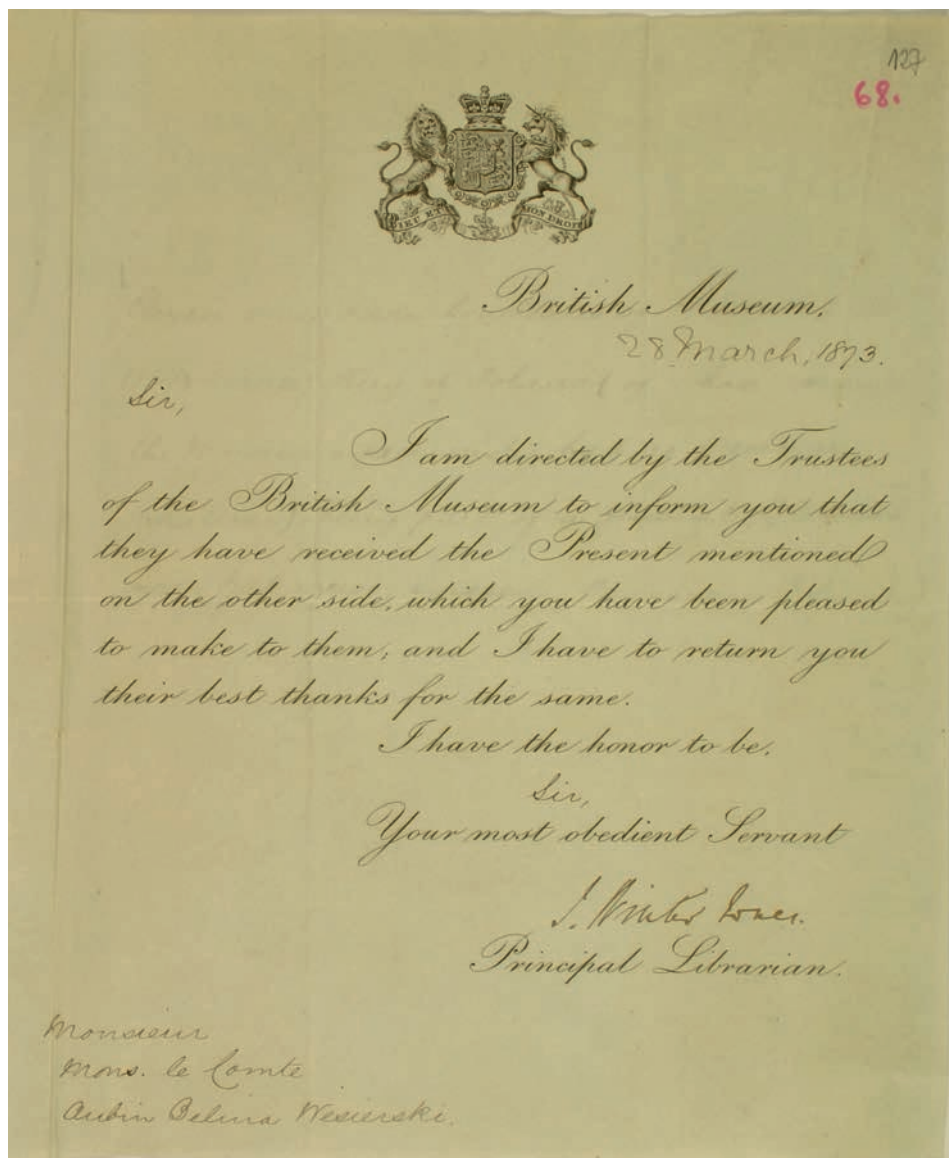 127
68.
DIEU ET MON DROIT
British Museum.
28 March, 1873.
Sir,
I am directed by the Trustees
of the British Museum to inform you that
they have received the Present mentioned
on the other side, which you have been pleased
to make to them; and I have to return you
their best thanks for the same.
I have the honor to be,
Sir,
Your most obedient Servant
J. Winter Jones.
Principal Librarian.
Monsieur
Mons. le Comte
Aubin Belina Wesierski.